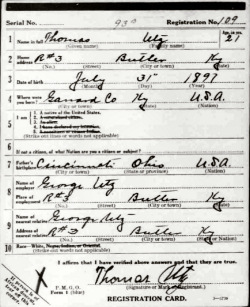 Serial No. 930 Registration No. 109
1 Name in full Thomas Utz Age, in yrs. 21
(Given name) (Family name)
2 Home address R#3 Butler Ky
(No.) (Street) (City or town) (State)
3 Date of birth July 31" 1897
(Month) (Day) (Year)
4 Where were you born? Garrard Co Ky U.S.A.
(City or town) (State) (Nation)
5 I am
1. A native of the United States.
2. A naturalized citizen.
3. An alien.
4. I have declared my intention.
5.
(Strike out lines or words not applicable)
6 If not a citizen, of what Nation are you a citizen or subject?
7 Father's birthplace Cincinnati Ohio U.S.A.
(City or town) (State or province) (Nation)
8 Name of employer George Utz
Place of employment R#3 Butler Ky
(No.) (Street) (City or town) (State)
9 Name of nearest relative George Utz
Address of nearest relative R#3 Butler Ky
(No.) (Street) (City or town) (State)
10 Race—White, Negro, Indian, or Oriental
(Strike out words not applicable)
I affirm that I have verified above answers and that they are true.
X
Thomas Utz
P. M. G. O.
Form 1 (blue)
(Signature or Mark of Registrant.)
REGISTRATION CARD.